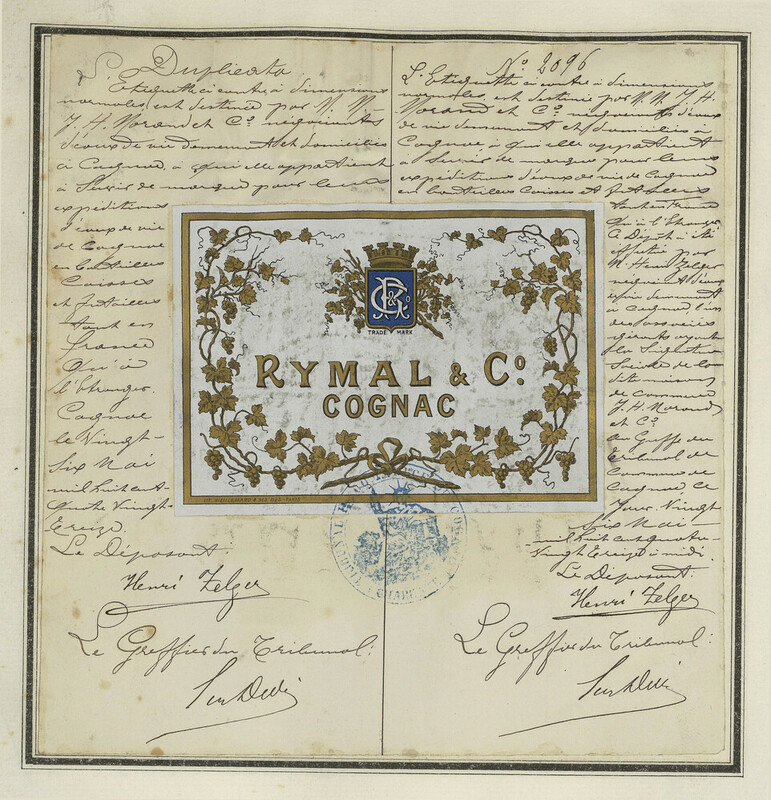 Duplicata
L'Etiquette ci contre à dimensions
normales, est destinée par M. M.
J. H. Morand et Cº négociants
d'eaux de vie demeurant et domiciliés
à Cognac, à qui elle appartient
à Servir de marque pour leurs
expéditions
d'eaux de vie
de Cognac
en bouteilles
Caisses
et futailles
tant en
France
Qu'à
l'Etranger.
Cognac
le Vingt-
Six Mai
mil huit cent
Quatre Vingt-
Treize
Le Déposant
Henri Zelger
Le Greffier du Tribunal:
Nº 2096
L'Etiquette ci contre à dimensions
normales, est destinée par M. M. J. H.
Morand et Cº négociants d'eaux
de vie demeurant et domiciliés à
Cognac, à qui elle appartient
à Servir de marque pour leurs
expéditions d'eaux de vie de Cognac
en bouteilles Caisses et futailles
tant en France
Qu'à l'Etranger
Ce Dépôt a été
effectué par
M. Henri Zelger
négociant d'eaux
de vie demeurant
à Cognac l'un
des associés
gérants ayant
la Signature
Sociale de la
dite maison
de commerce
J. H. Morand
et Cº
au Greffe du
Tribunal de
Commerce de
Cognac ce
jour Vingt
Six Mai
mil huit cent quatre-
Vingt Treize à midi.
Le Déposant:
Henri Zelger
Le Greffier du Tribunal:
C&R Cº
TRADE MARK
RYMAL & Cº
COGNAC